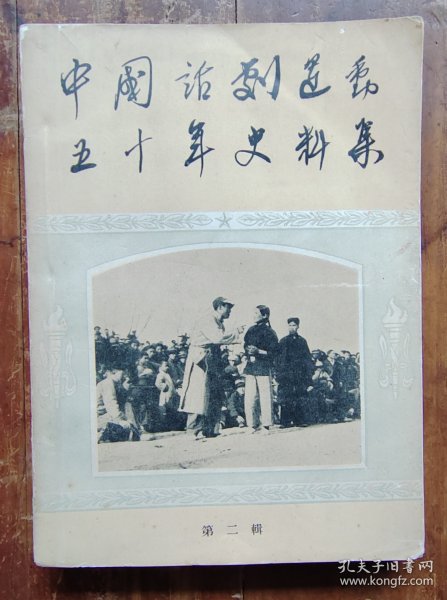 中國话劇运動
五十年史料集
第二輯
孔夫子旧书网
www.kongfz.com